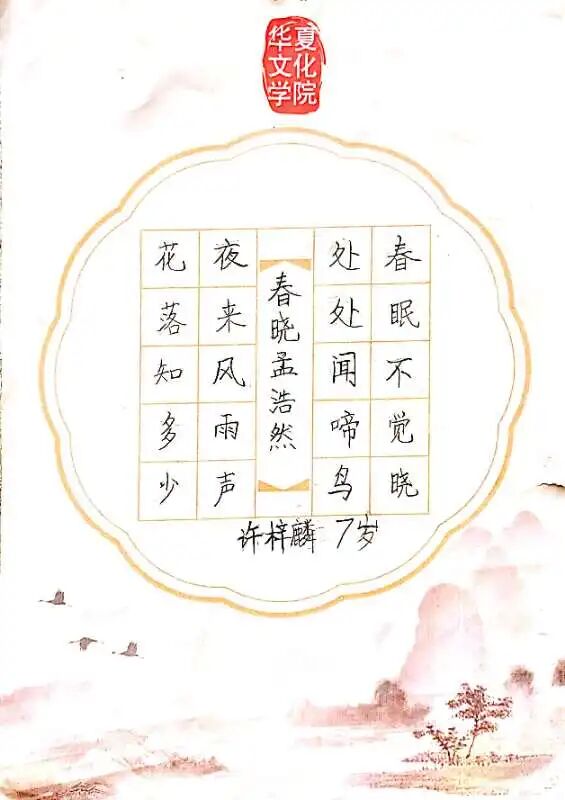 华夏
文化
学院
春眠不觉晓
处处闻啼鸟
春晓孟浩然
夜来风雨声
花落知多少
许梓麟 7岁